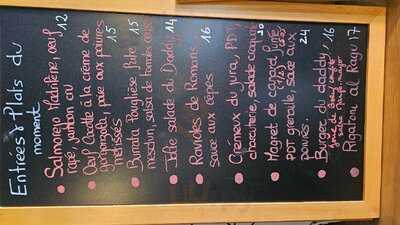 Entrées & Plats du
moment
Salmorejo Madrilène, oeuf 12
rapé, jambon cru
Oeuf Cocotte à la crème de 15
gorgonzola, purée aux patates
Burrata Pougliese fumée 15
mesclun, salsa de tomates
Jolie salade du Daddy 14
Ravioles de Romans 16
sauce aux cèpes
Crémeux du Jura, PDT,
charcuterie, salade 20
Magret de canard fumé
PDT grenaille, sauce aux 24
poivres.
Burger du daddy 16
Rigatoni al Ragu 17